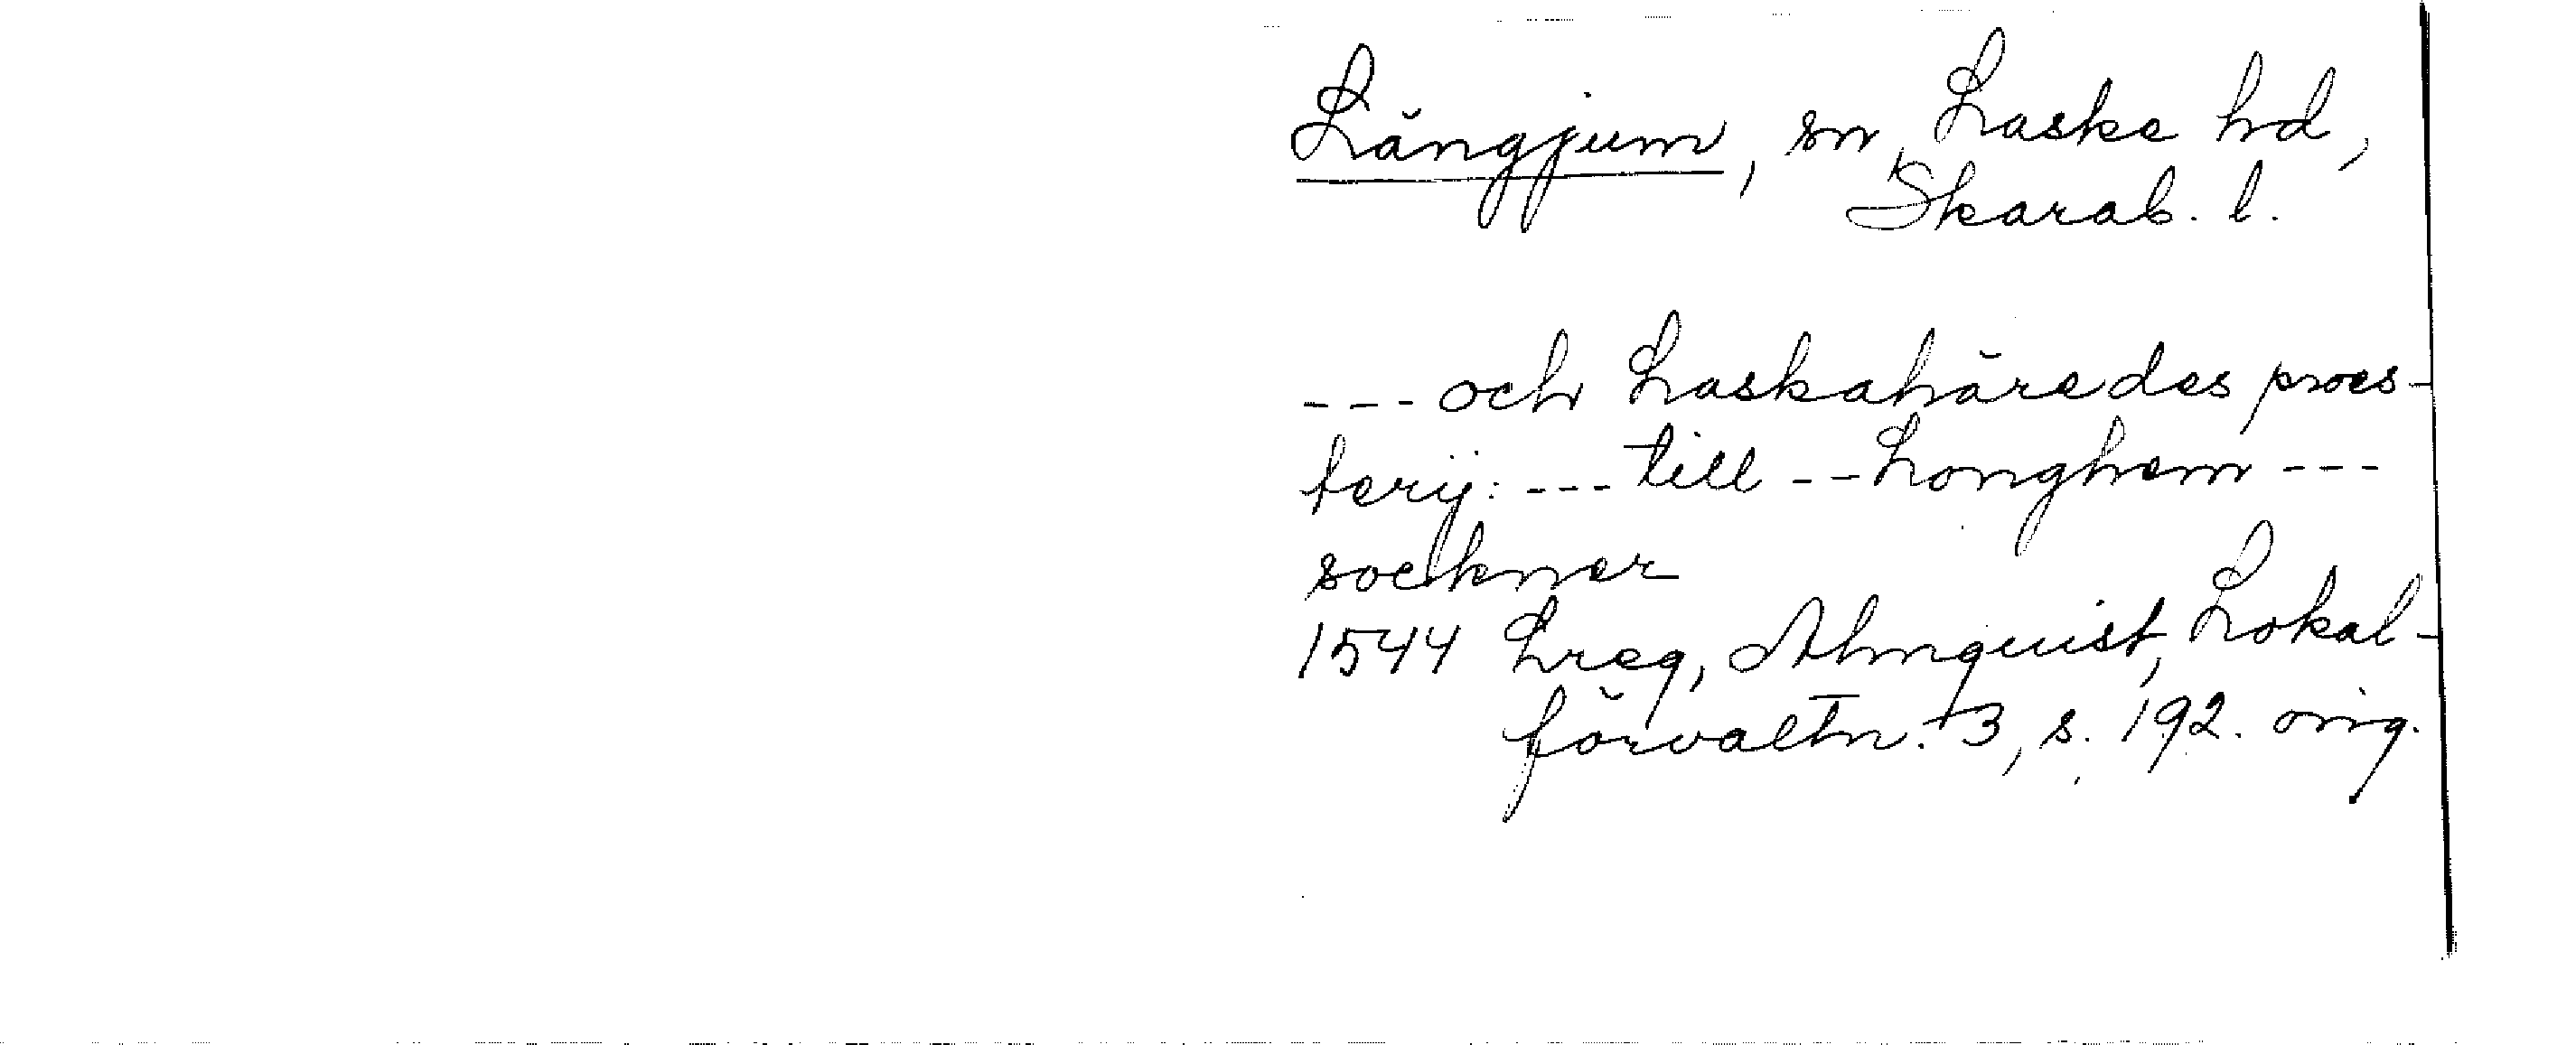 Längjum, sn, Laske hd,
Skarab. l.
--- och Laskahäredes proes-
terij: --- till -- Longhem ---
sockner
1544 Lreg, Almquist, Lokal-
förvaltn. 3, s. 192. orig.